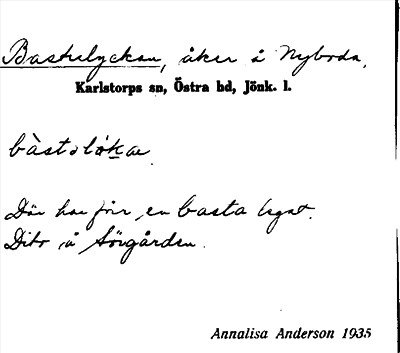 Bastulyckan, åker å Nyboda,
Karlstorps sn, Östra hd, Jönk. l.
bàstolókar
Där har förr en basta legat.
Dito å Sörgården.
Annalisa Anderson 1935